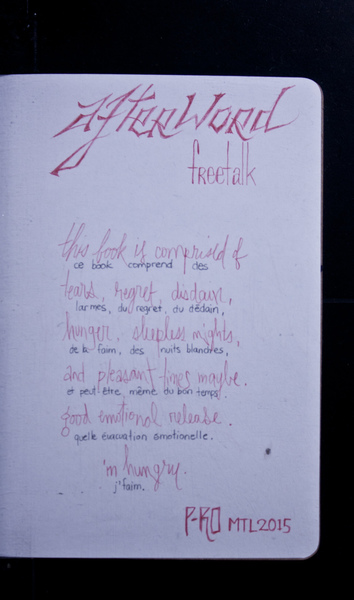 afterword
freetalk
this book is comprised of
ce book comprend des
tears, regret, disdain,
larmes, du regret, du dédain,
hunger, sleepless nights,
de la faim, des nuits blanches,
and pleasant times maybe.
et peut être même du bon temps.
good emotional release.
quelle évacuation émotionelle.
'm hungry.
j'faim.
P-KO MTL2015